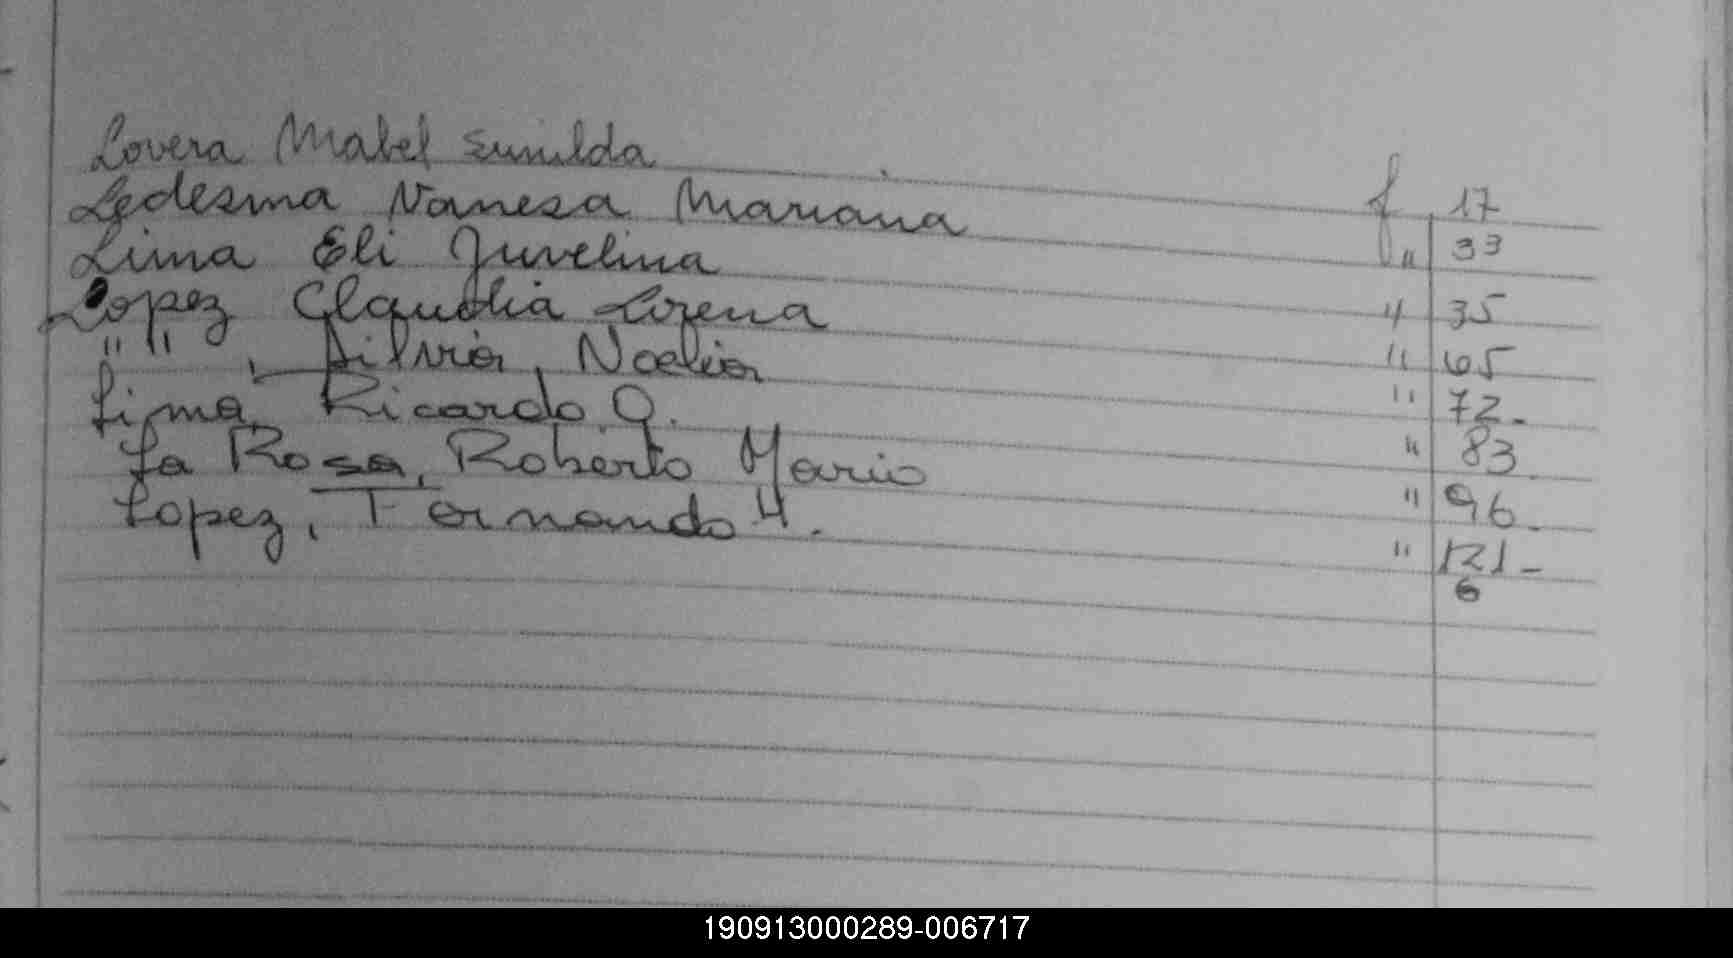 Lovera Mabel Sunilda f 17
Ledesma Vanesa Mariana " 33
Lima Eli Juvelina " 35
Lopez Claudia Lorena " 65
" " , Silvia, Noelia " 72-
Lima, Ricardo O. " 83
La Rosa, Roberto Mario " 96-
Lopez, Fernando H. " 121-
6
190913000289-006717